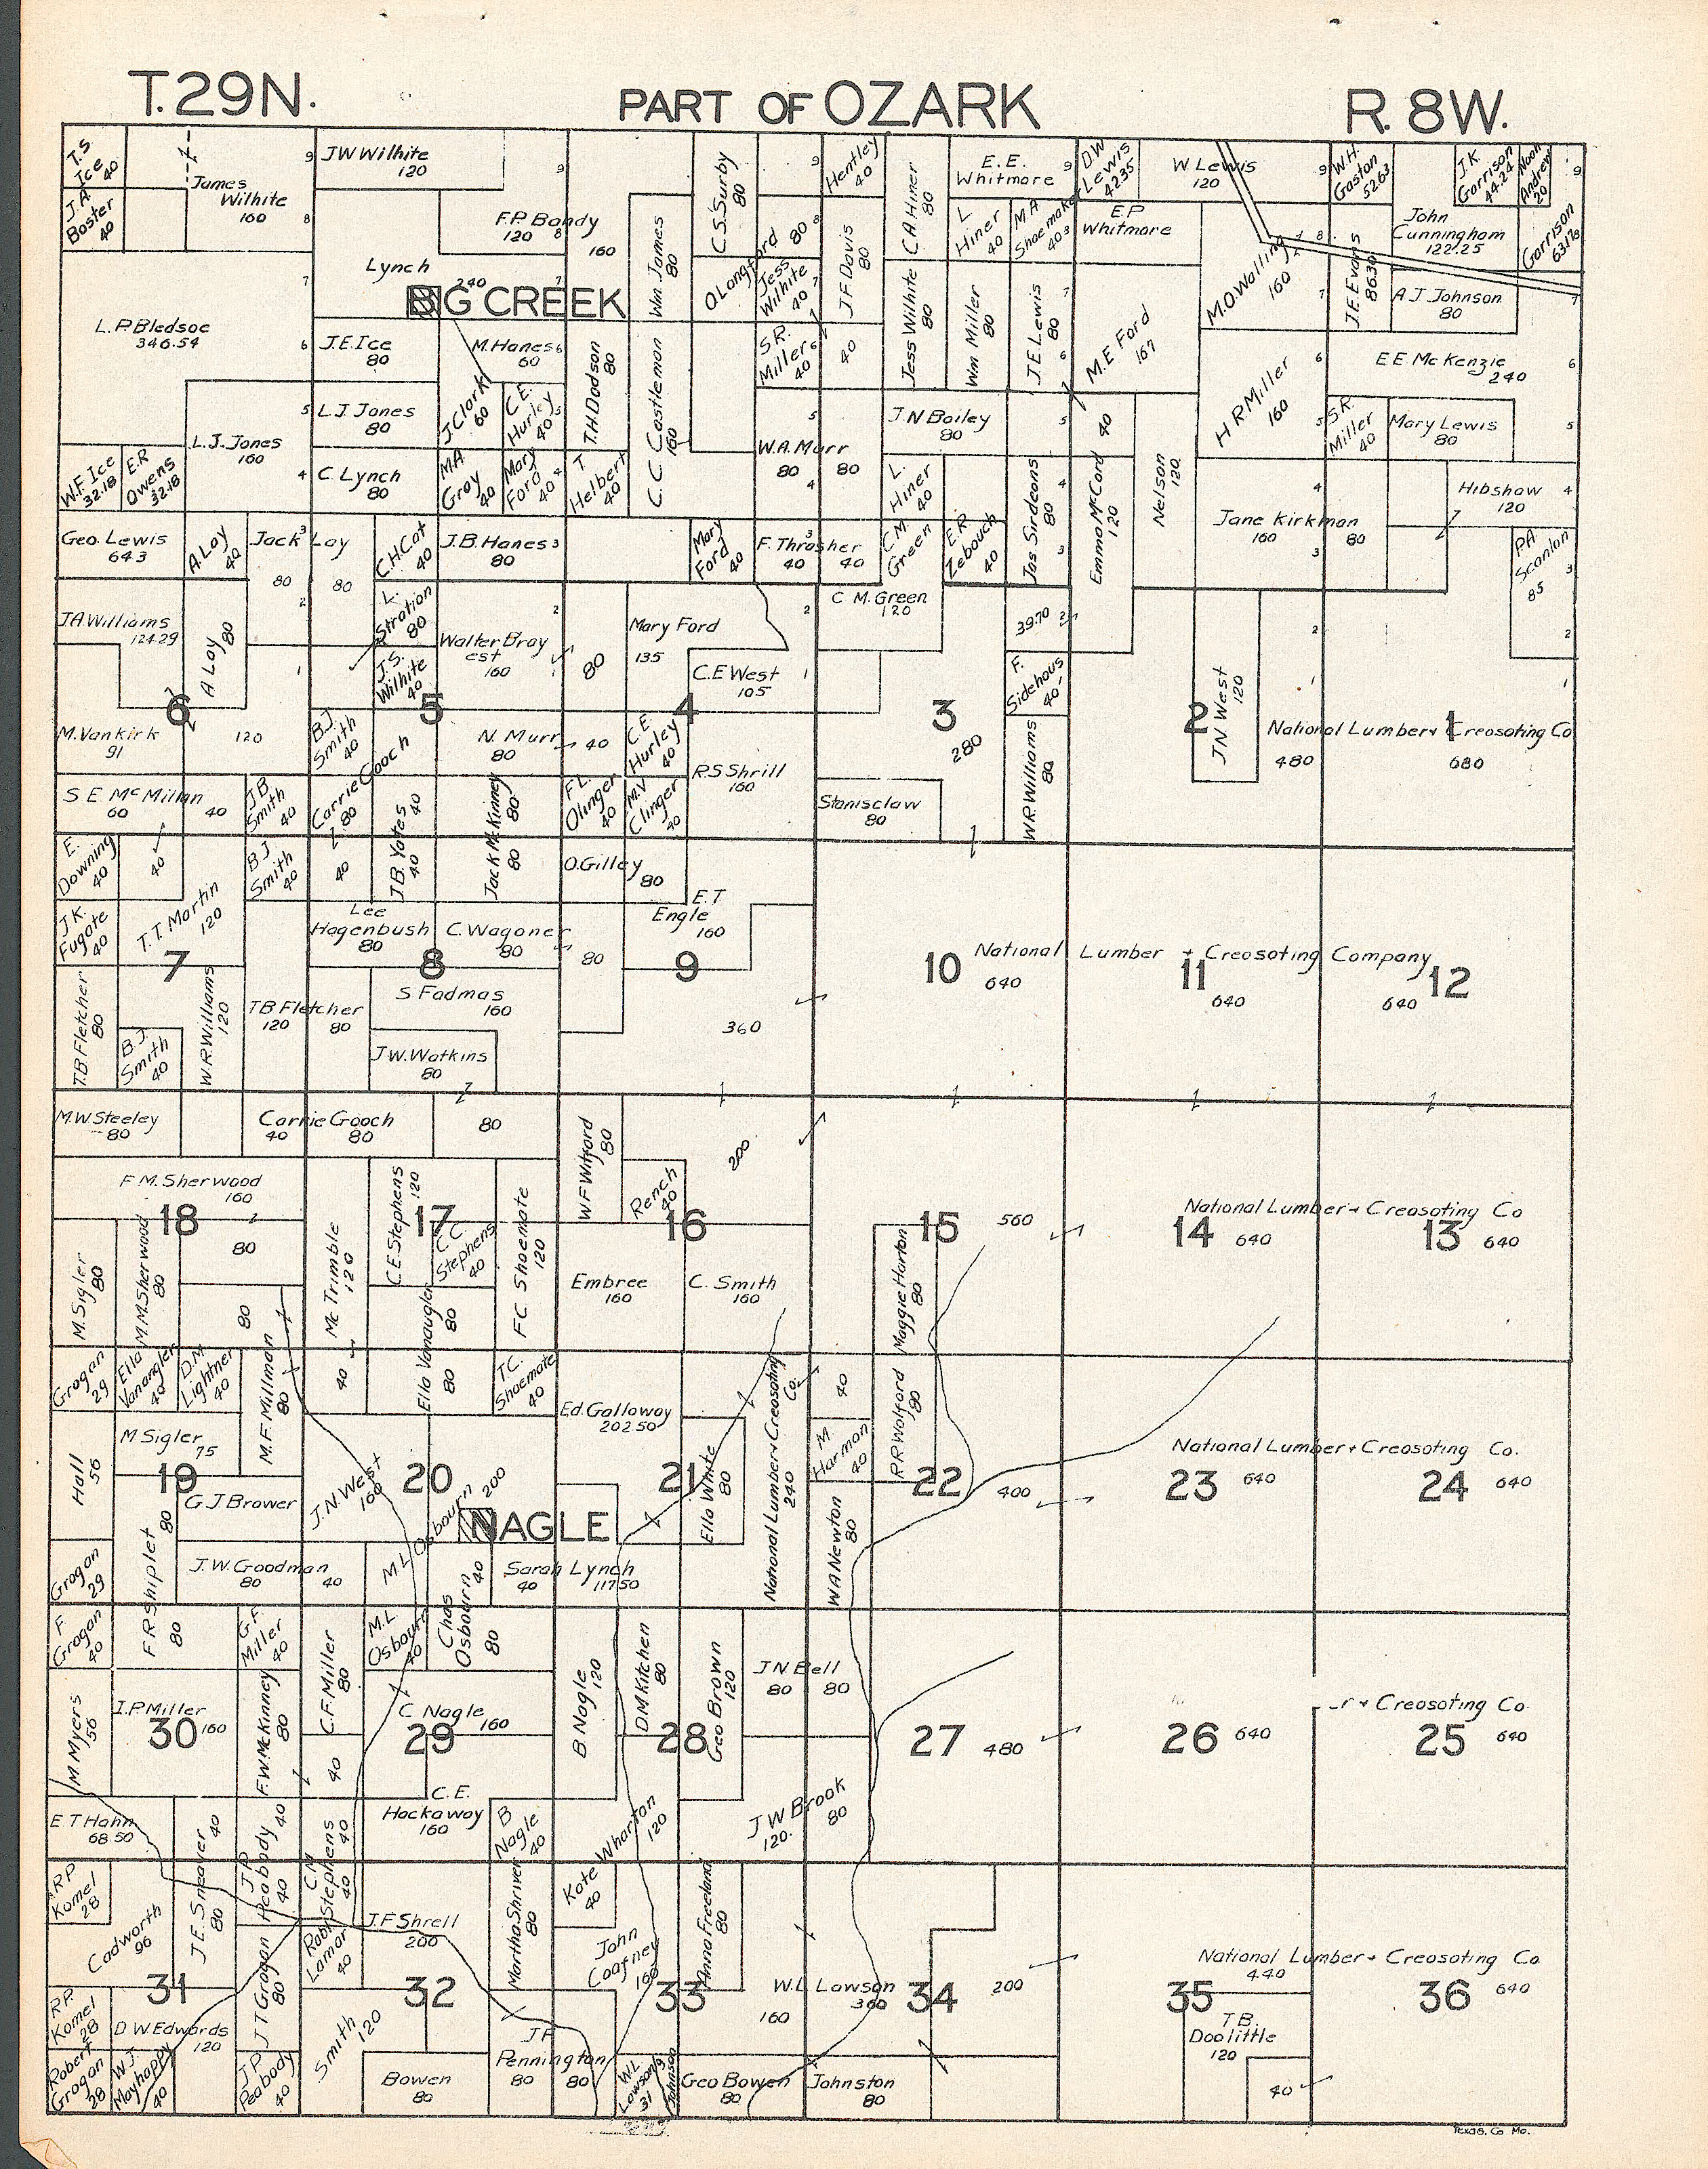 T.29N.
PART OF OZARK
R. 8W.
T.S Ice 40
J.A. Boster 40
James Wilhite 160
9
8
7
6
5
4
JW Wilhite 120
9
F.P. Bandy
120 8
160
Lynch 240
BIG CREEK
7
Wm. James 80
C.S. Surby 80
9
Hentley 40
C.A. Hiner 80
E. E. Whitmore
9
D.W Lewis 42.35
W Lewis 120
9
W.H. Gaston 52.63
J.K. Garrison 44.24
Noah Andrew 20
9
L Hiner 40
M A Shoemaker 40
E.P Whitmore
John Cunningham 122.25
Garrison 63.78
O Langford 80
8
Jess Wilhite 40
7
J F Davis 80
M.O. Walling 160
8
7
J.F. Evans 86.30
A J Johnson 80
7
L.P. Bledsoe 346.54
J.E. Ice 80
M. Hanes 60
6
S.R. Miller 40
6
40
Jess Wilhite 80
Wm Miller 80
J.E Lewis 80
7
6
M.E Ford 167
H R Miller 160
6
5
E E McKenzie 240
6
L.J. Jones 160
L.J. Jones 80
J. Clark 60
C.E. Hurley 40
5
T.H. Dodson 80
C.C Castleman 160
W.A. Murr
80
80
5
4
J.N Bailey 80
5
40
Nelson 120
S.R. Miller 40
Mary Lewis 80
5
W.F. Ice 32.18
E.R Owens 32.18
C. Lynch 80
M.A Gray 40
Mary Ford 40
4
T Helbert 40
L. Hiner 40
Jas Sirdeons 80
4
3
Emma McCord 120
Hibshaw 120
4
Geo. Lewis 64.3
A. Lay 40
Jack Lay
3
80
80
2
1
C.H. Cat 40
J.B. Hanes 80
3
Mary Ford 40
F. Thrasher
3
40
40
C.M. Green
E.R. Zebouch 40
Jane Kirkman
160
80
3
P.A. Scanlan 85
3
2
1
J A Williams 124.29
A Lay 80
L. Stration 80
J.S. Wilhite 40
Walter Bray est 160
2
1
80
Mary Ford 135
C.E West 105
2
1
C M. Green 120
39.70
2
F. Sidehous 40
J N West 120
2
1
6
5
4
3
280
2
1
M. Vankirk 91
120
B.J. Smith 40
N. Murr 80
40
C.E. Hurley 40
R S Shrill 160
W.R. Williams 80
National Lumber + Creosoting Co
480
680
S E McMillan
60
40
J B. Smith 40
Carrie Gooch 80
J.B. Yates 40
40
Jack McKinney 80
80
F L. Olinger 40
M.V Clinger 40
Stanisclaw 80
E. Downing 40
40
B J. Smith 40
40
O. Gilley 80
E. T Engle 160
J.K. Fugate 40
T. T. Martin 120
Lee Hagenbush 80
C. Wagoner 80
80
7
8
9
10
11
12
National Lumber + Creosoting Company
640
640
640
T.B Fletcher 80
B J. Smith 40
W.R. Williams 120
T B Fletcher
120
80
S Fadmas 160
J W. Watkins 80
360
M.W. Steeley 80
Carrie Gooch
40
80
80
W F Witford 80
Rench 40
200
F M. Sherwood 160
18
17
16
15
14
13
560
National Lumber + Creosoting Co
640
640
M. Sigler 80
M. M. Sherwood 80
80
80
McTrimble 120
C.E Stephens 120
C C Stephens 40
F C Shoemate 120
Embree 160
C. Smith 160
Maggie Horton 80
Ella Vanaugler
80
80
Grogan 29
Ella Vanangler 40
D.M. Lightner 40
M. F. Millman 80
40
T.C. Shoemate 40
Ed. Galloway 202.50
National Lumber + Creosoting Co. 240
40
R R Wolford 80
Hall 56
M Sigler 75
19
20
21
22
23
24
G J Brower
J. N. West 160
M L Osbourn 200
NAGLE
Ella White 80
M Harmon 40
400
National Lumber + Creosoting Co.
640
640
Grogan 29
F R Shiplet
80
80
J.W. Goodman
80
40
Chas Osbourn
40
80
Sarah Lynch
40
117.50
W A Newton 80
F. Grogan 40
G.F. Miller 40
C.F. Miller 80
40
M.L Osbourn 40
B Nagle 120
D M Kitchen 80
Geo Brown 120
J N Bell
80
80
M. Myers 56
I.P. Miller 160
F.W. McKinney 80
C Nagle 160
30
29
28
27
26
25
480
+ Creosoting Co
640
640
E T Hahn 68.50
40
40
40
C. E. Hackaway 160
B Nagle 40
Kate Wharton
120
40
J W Brook
120
80
R P Komel 28
Cadworth 96
J E. Sneaver 80
J P Peabody 40
C M Stephens 40
Robt Lamar 40
J.F Shrell 200
Martha Shriver 80
John Coafney 160
Anna Freeland 80
W.L Lawson
160
360
31
32
33
34
35
36
200
National Lumber + Creosoting Co.
440
640
R.P. Komel 28
D W Edwards 120
J T Grogan 80
Smith 120
J F Pennington
80
80
T B. Doolittle 120
40
Robert Grogan 28
W J. Mayhappy 40
J P. Peabody 40
Bowen 80
W.L Lawson 31
Johnson
Geo Bowen 80
Johnston 80
Texas, Co Mo.